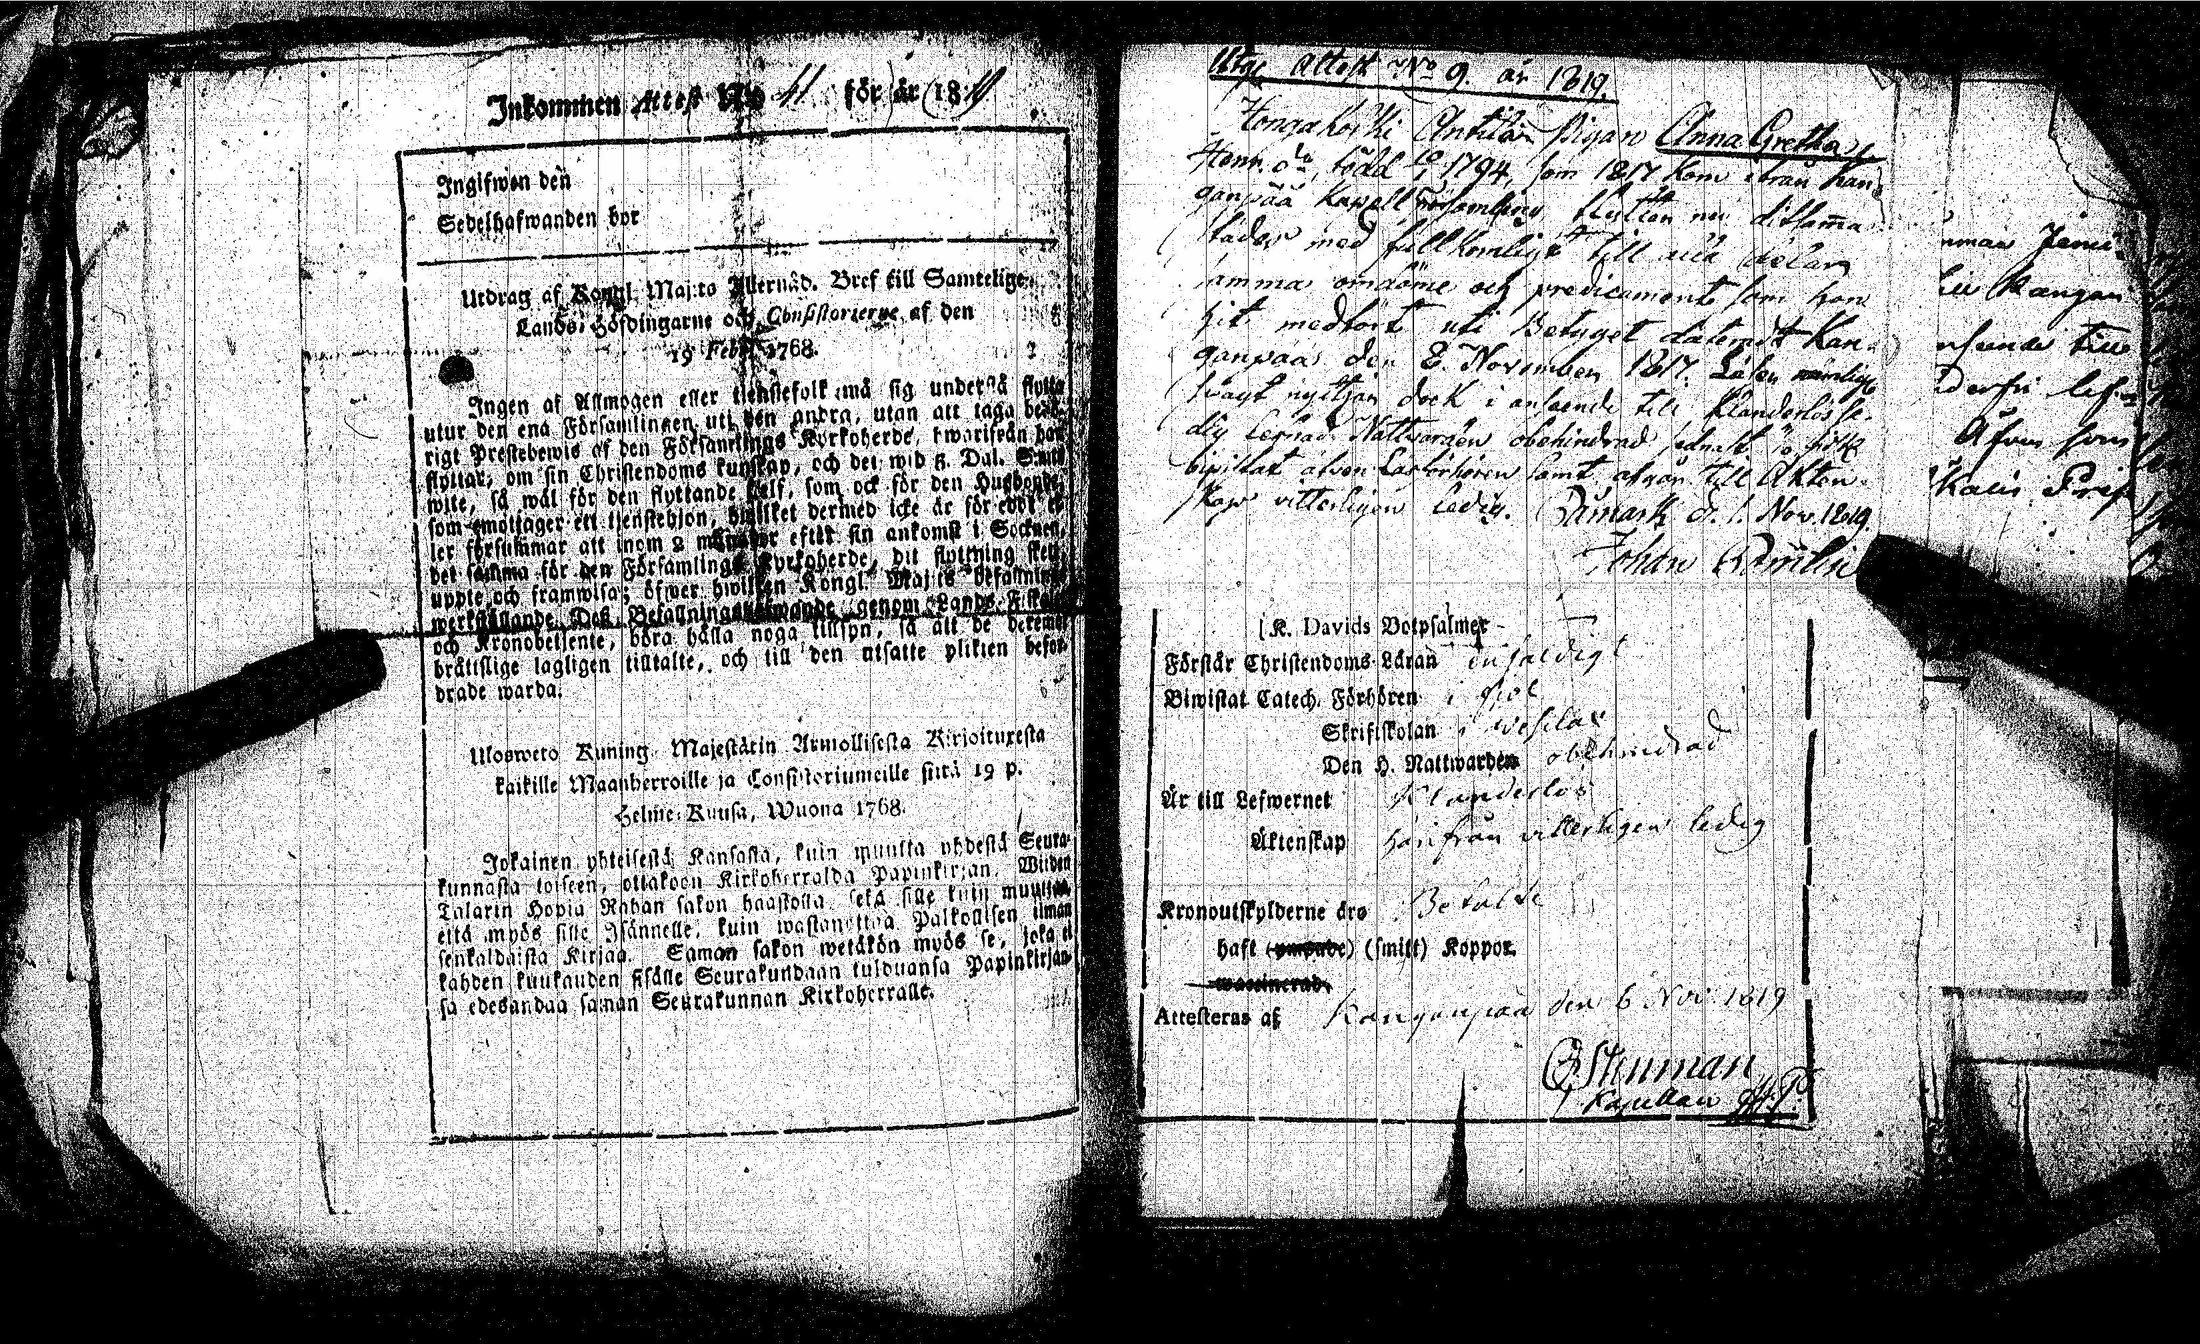 Inkommen Attest N:o 41 för år 1819
Ingifwen den
Sedelhafwanden bor
Utdrag af Kongl. Maj:ts Allernåd. Bref till Samtelige
Lands-Höfdingarne och Consistorierne af den
19 Febr. 1768.
Ingen af Allmogen eller tjenstefolk må sig understå flytta
utur den ena Församlingen uti den andra, utan att taga
rigt Prestebewis af den Församlings Kyrkoherde, hwarifrån han
flyttar, om sin Christendoms kunskap, och det wid 5. Dal. S:mts
wite, så wäl för den flyttande self, som ock för den Husbonde,
som emottager ett tjenstehjon, hwilket dermed icke är försedt el-
ler försummar att inom 2 månader efter sin ankomst i Socknen,
det samma för den Församlings Kyrkoherde, dit flyttning sker,
uppte och framwisa; öfwer hwilken Kongl. Maj:ts befallnings
werkställande Deß Befallningshafwande genom Lands-Fiskaler
och Kronobetjente, böra hålla noga tillsyn, så att de deremot
bråttslige lagligen tilltalte, och till den utsatte plikten befor-
drade warda.
Ulosweto Kuning. Majestätin Armollisesta Kirjoituxesta
kaikille Maanherroille ja Consistoriumeille siitä 19 p.
Helme-Kuusa, Wuona 1768.
Jokainen yhteisestä Kansasta, kuin muutta yhdestä Seura-
kunnasta toiseen, ottakoon Kirkoherralda Papinkirjan, Wiiden
Talarin Hopia Rahan sakon haastolla, sekä sille kuin muuttaa,
että myös sille Isännelle, kuin wastanottaa Palkollisen ilman
senkaldaista Kirjaa. Saman sakon wetäkön myös se, joka ei
kahden kuukauden sisälle Seurakundaan tulduansa Papinkirjan-
sa edesandaa saman Seurakunnan Kirkoherralle.
Utg. attest No 9. år 1819.
Hongakoski Anttila Pigan Anna Gretha
Henr. d:r, född 1794, som 1817 kom ifrån Kan-
ganpää Kapell församling flyttar nu ditsamma
städes med fullkomligt till alla delar
samma omdöme och predicament som hon
hit medfört uti Betyget dateradt Kan-
ganpää den 8. November 1817. Läsen nämlige
svagt nyttjar dock i anseende till klanderlös se-
dig lefnad Nattvarden obehindrad
bivistat äfven Läsförhören samt afgår till Äkten-
skap vitterligen ledig. Pämark d. 1. Nov. 1819.
Johan
nman
till Kangan
nseende till
Derför
Äfven som
K. Davids Botpsalmer -
Förstår Christendoms Läran enfaldigt
Biwistat Catech. Förhören i fjol
Skriftskolan i
Den H. Nattwarden obehindrad
Är till Lefwernet Klanderlös
Äktenskap härifrån vitterligen ledig
Kronoutskylderne äro Betalde
haft (smitt) Koppor.
Attesteras af Kanganpää den 6 Nov. 1819
Stuman
Kapellan